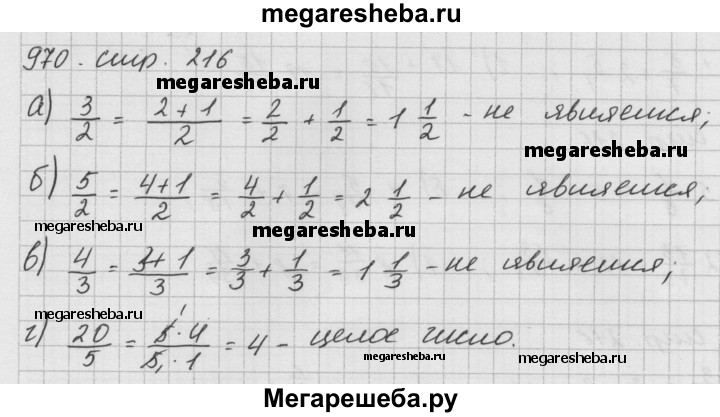 megaresheba.ru
970. стр. 216
megaresheba.ru
а) 3/2 = (2+1)/2 = 2/2 + 1/2 = 1 1/2 - не является;
megaresheba.ru
б) 5/2 = (4+1)/2 = 4/2 + 1/2 = 2 1/2 - не является;
megaresheba.ru megaresheba.ru
в) 4/3 = (3+1)/3 = 3/3 + 1/3 = 1 1/3 - не является;
megaresheba.ru
г) 20/5 = (5·4)/(5·1) = 4 - целое число.
megaresheba.ru megaresheba.ru
Мегарешеба.ру